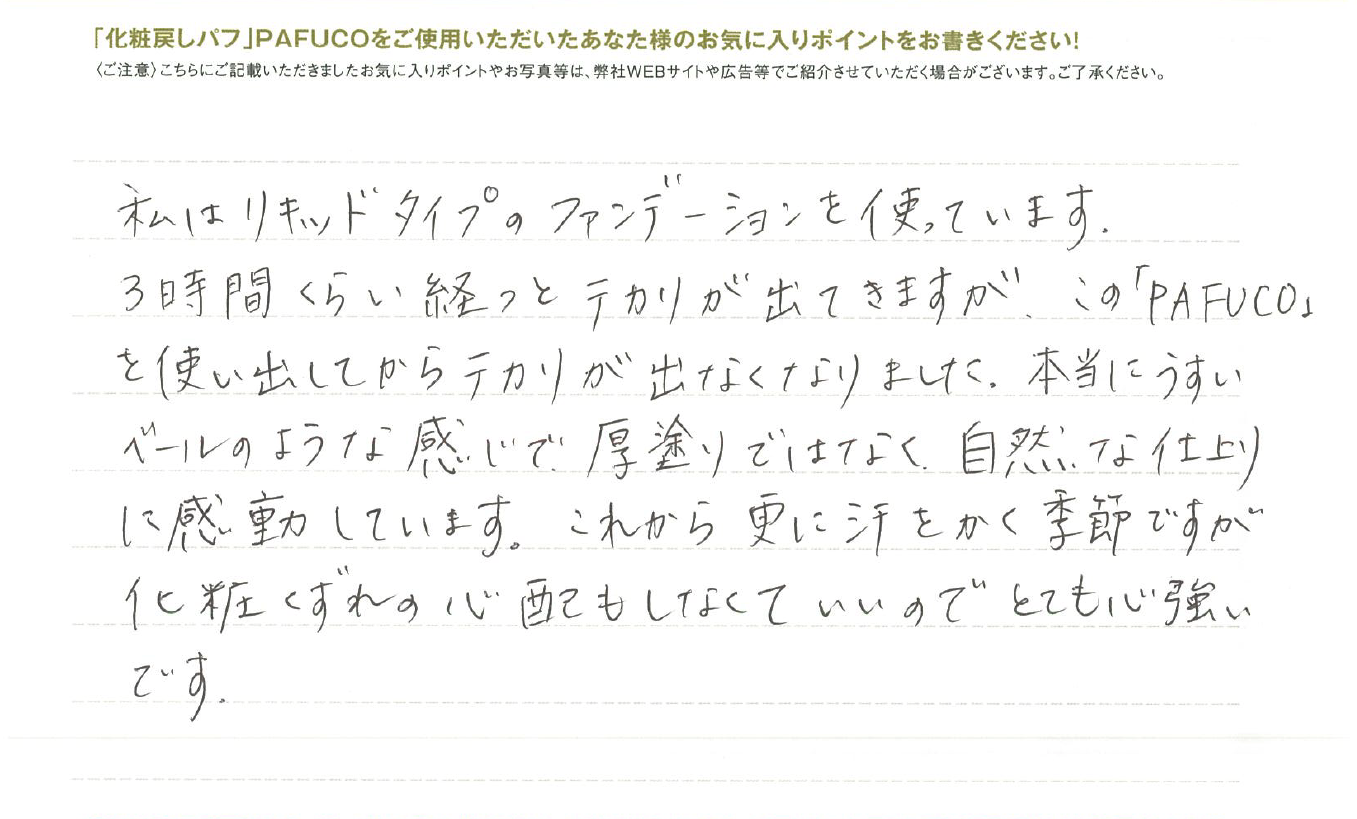 「化粧戻しパフ」PAFUCOをご使用いただいたあなた様のお気に入りポイントをお書きください!
〈ご注意〉こちらにご記載いただきましたお気に入りポイントやお写真等は、弊社WEBサイトや広告等でご紹介させていただく場合がございます。ご了承ください。
私はリキッドタイプのファンデーションを使っています.
3時間くらい経つとテカリが出てきますが、この「PAFUCO」
を使い出してからテカリが出なくなりました. 本当にうすい
ベールのような感じで、厚塗りではなく、自然な仕上り
に感動しています。これから更に汗をかく季節ですが
化粧くずれの心配もしなくていいのでとても心強い
です.